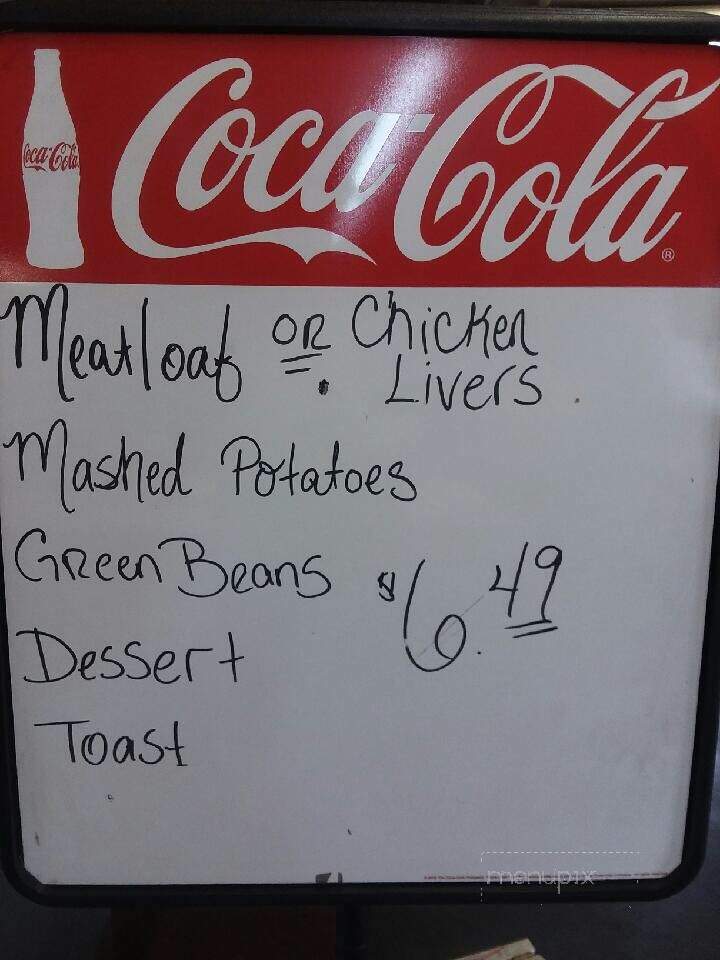 Coca-Cola
Coca-Cola®
Meatloaf OR Chicken
Livers
Mashed Potatoes
Green Beans
$6.49
Dessert
Toast
menupix